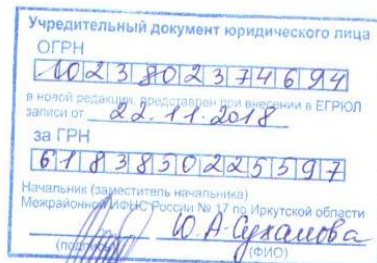 Учредительный документ юридического лица
ОГРН
1023802374694
в новой редакции, представлен при внесении в ЕГРЮЛ
записи от 22.11.2018
за ГРН
6183850225597
Начальник (заместитель начальника)
Межрайонной ИФНС России № 17 по Иркутской области
Ю.А. Суханова
(подпись) (ФИО)